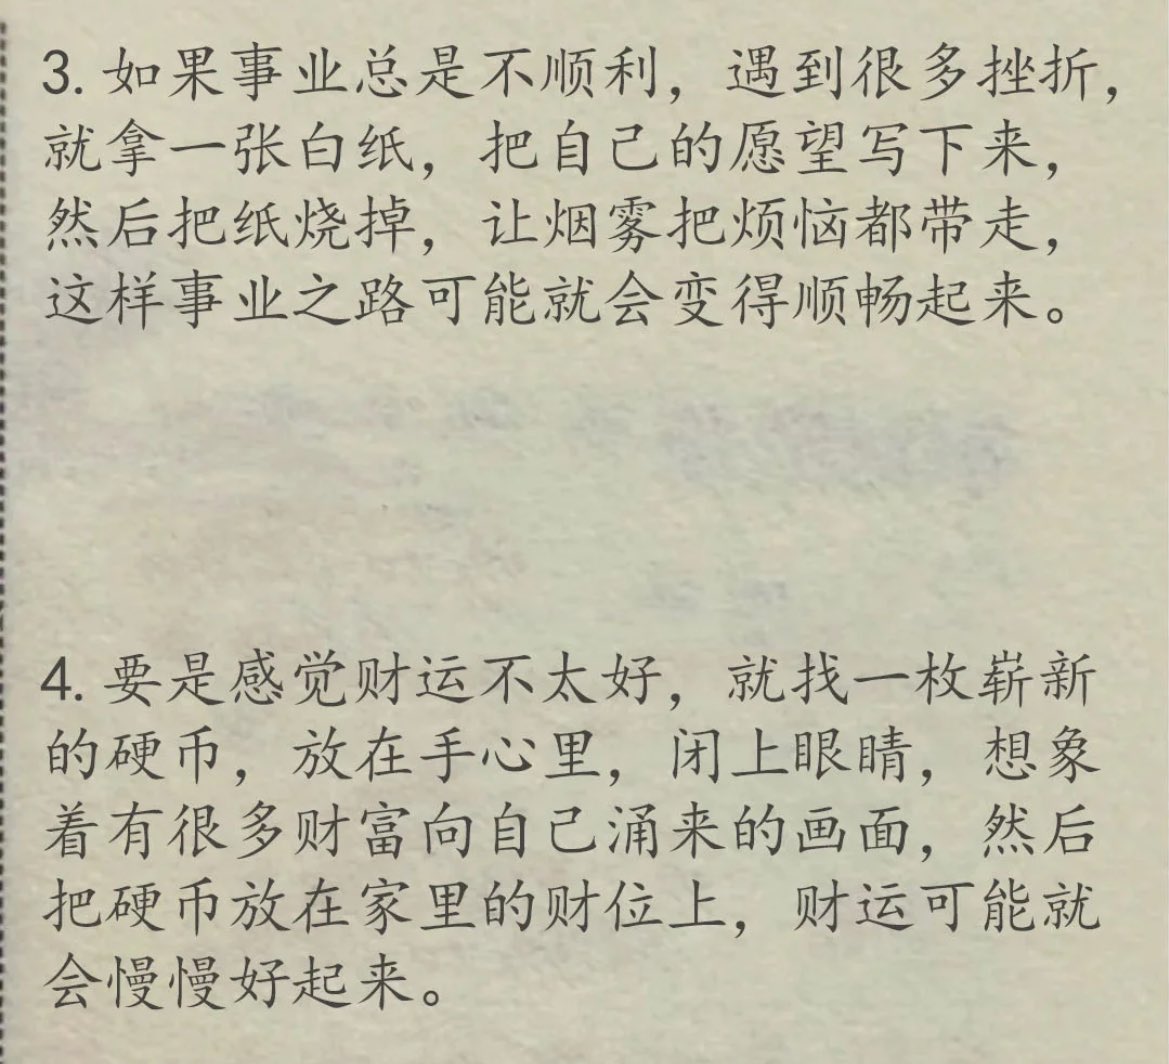 3. 如果事业总是不顺利，遇到很多挫折，
就拿一张白纸，把自己的愿望写下来，
然后把纸烧掉，让烟雾把烦恼都带走，
这样事业之路可能就会变得顺畅起来。
4. 要是感觉财运不太好，就找一枚崭新
的硬币，放在手心里，闭上眼睛，想象
着有很多财富向自己涌来的画面，然后
把硬币放在家里的财位上，财运可能就
会慢慢好起来。